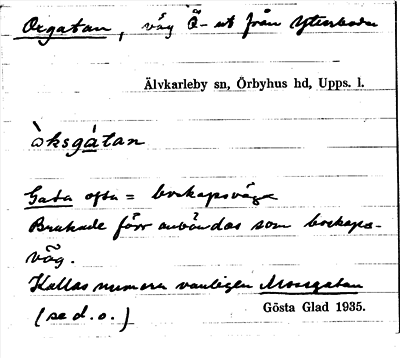 Oxgatan, väg Ö-ut från Ytterboda
Älvkarleby sn, Örbyhus hd, Upps. l.
òksgàtan
Gata ofta = boskapsväg
Brukade förr användas som boskaps-
väg.
Kallas numera vanligen Mossgatan
(se d.o.)
Gösta Glad 1935.